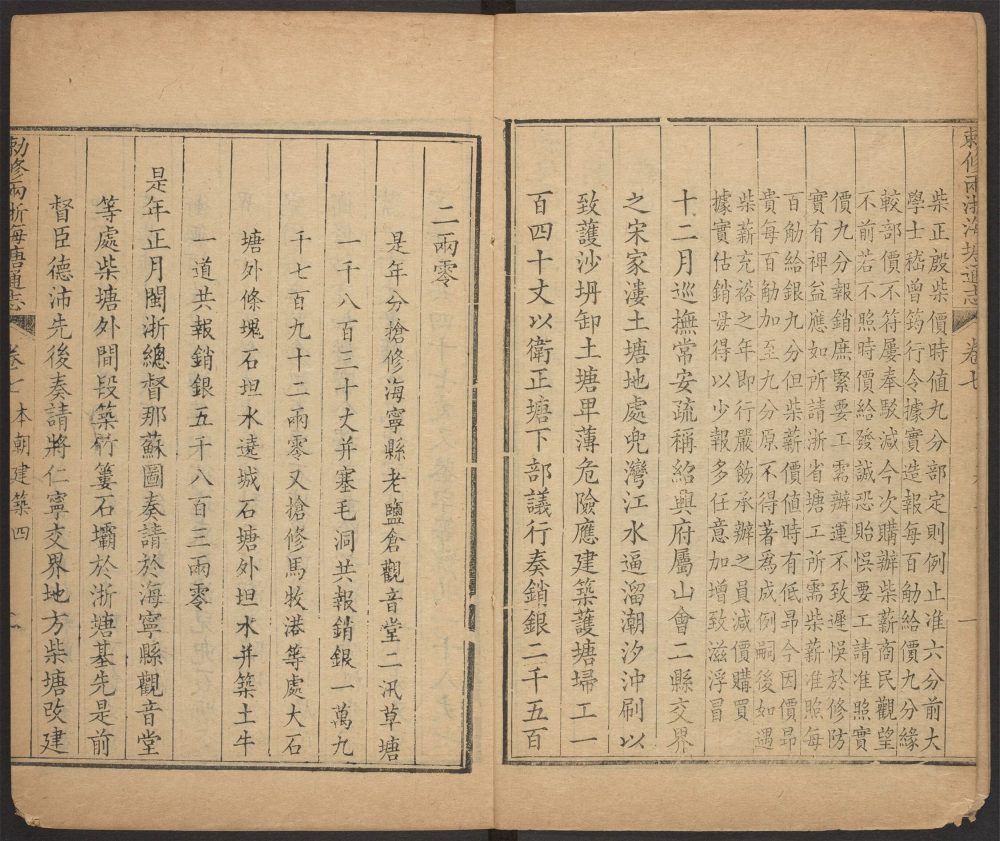 敕修兩浙海塘通志 卷七 一
柴正殷柴價時值九分部定則例止准六分前大
學士嵇曾筠行令據實造報每百觔給價九分緣
較部價不符屢奉駁減今次購辦柴薪商民觀望
不前若不照時價給發誠恐貽悞要工請准照實
價九分報銷庶緊要工需辦運不致遲悞於修防
實有裨益應如所請浙省塘工所需柴薪准照每
百觔給銀九分但柴薪價值時有低昻今因價昻
貴每百觔加至九分原不得著爲成例嗣後如遇
柴薪充裕之年即行嚴飭承辦之員減價購買
據實估銷毋得以少報多任意加增致滋浮冒
十二月巡撫常安疏稱紹興府屬山會二縣交界
之宋家漊土塘地處兜灣江水逼溜潮汐沖刷以
致護沙坍卸土塘卑薄危險應建築護塘埽工一
百四十丈以衛正塘下部議行奏銷銀二千五百
二兩零
是年分搶修海寧縣老鹽倉觀音堂二汛草塘
一千八百三十丈并塞毛洞共報銷銀一萬九
千七百九十二兩零又搶修馬牧港等處大石
塘外條塊石坦水遶城石塘外坦水并築土牛
一道共報銷銀五千八百三兩零
是年正月閩浙總督那蘇圖奏請於海寧縣觀音堂
等處柴塘外間段築竹簍石壩於漸塘基先是前
督臣德沛先後奏請將仁寧交界地方柴塘改建
勅修兩浙海塘通志 卷七 本朝建築四 一